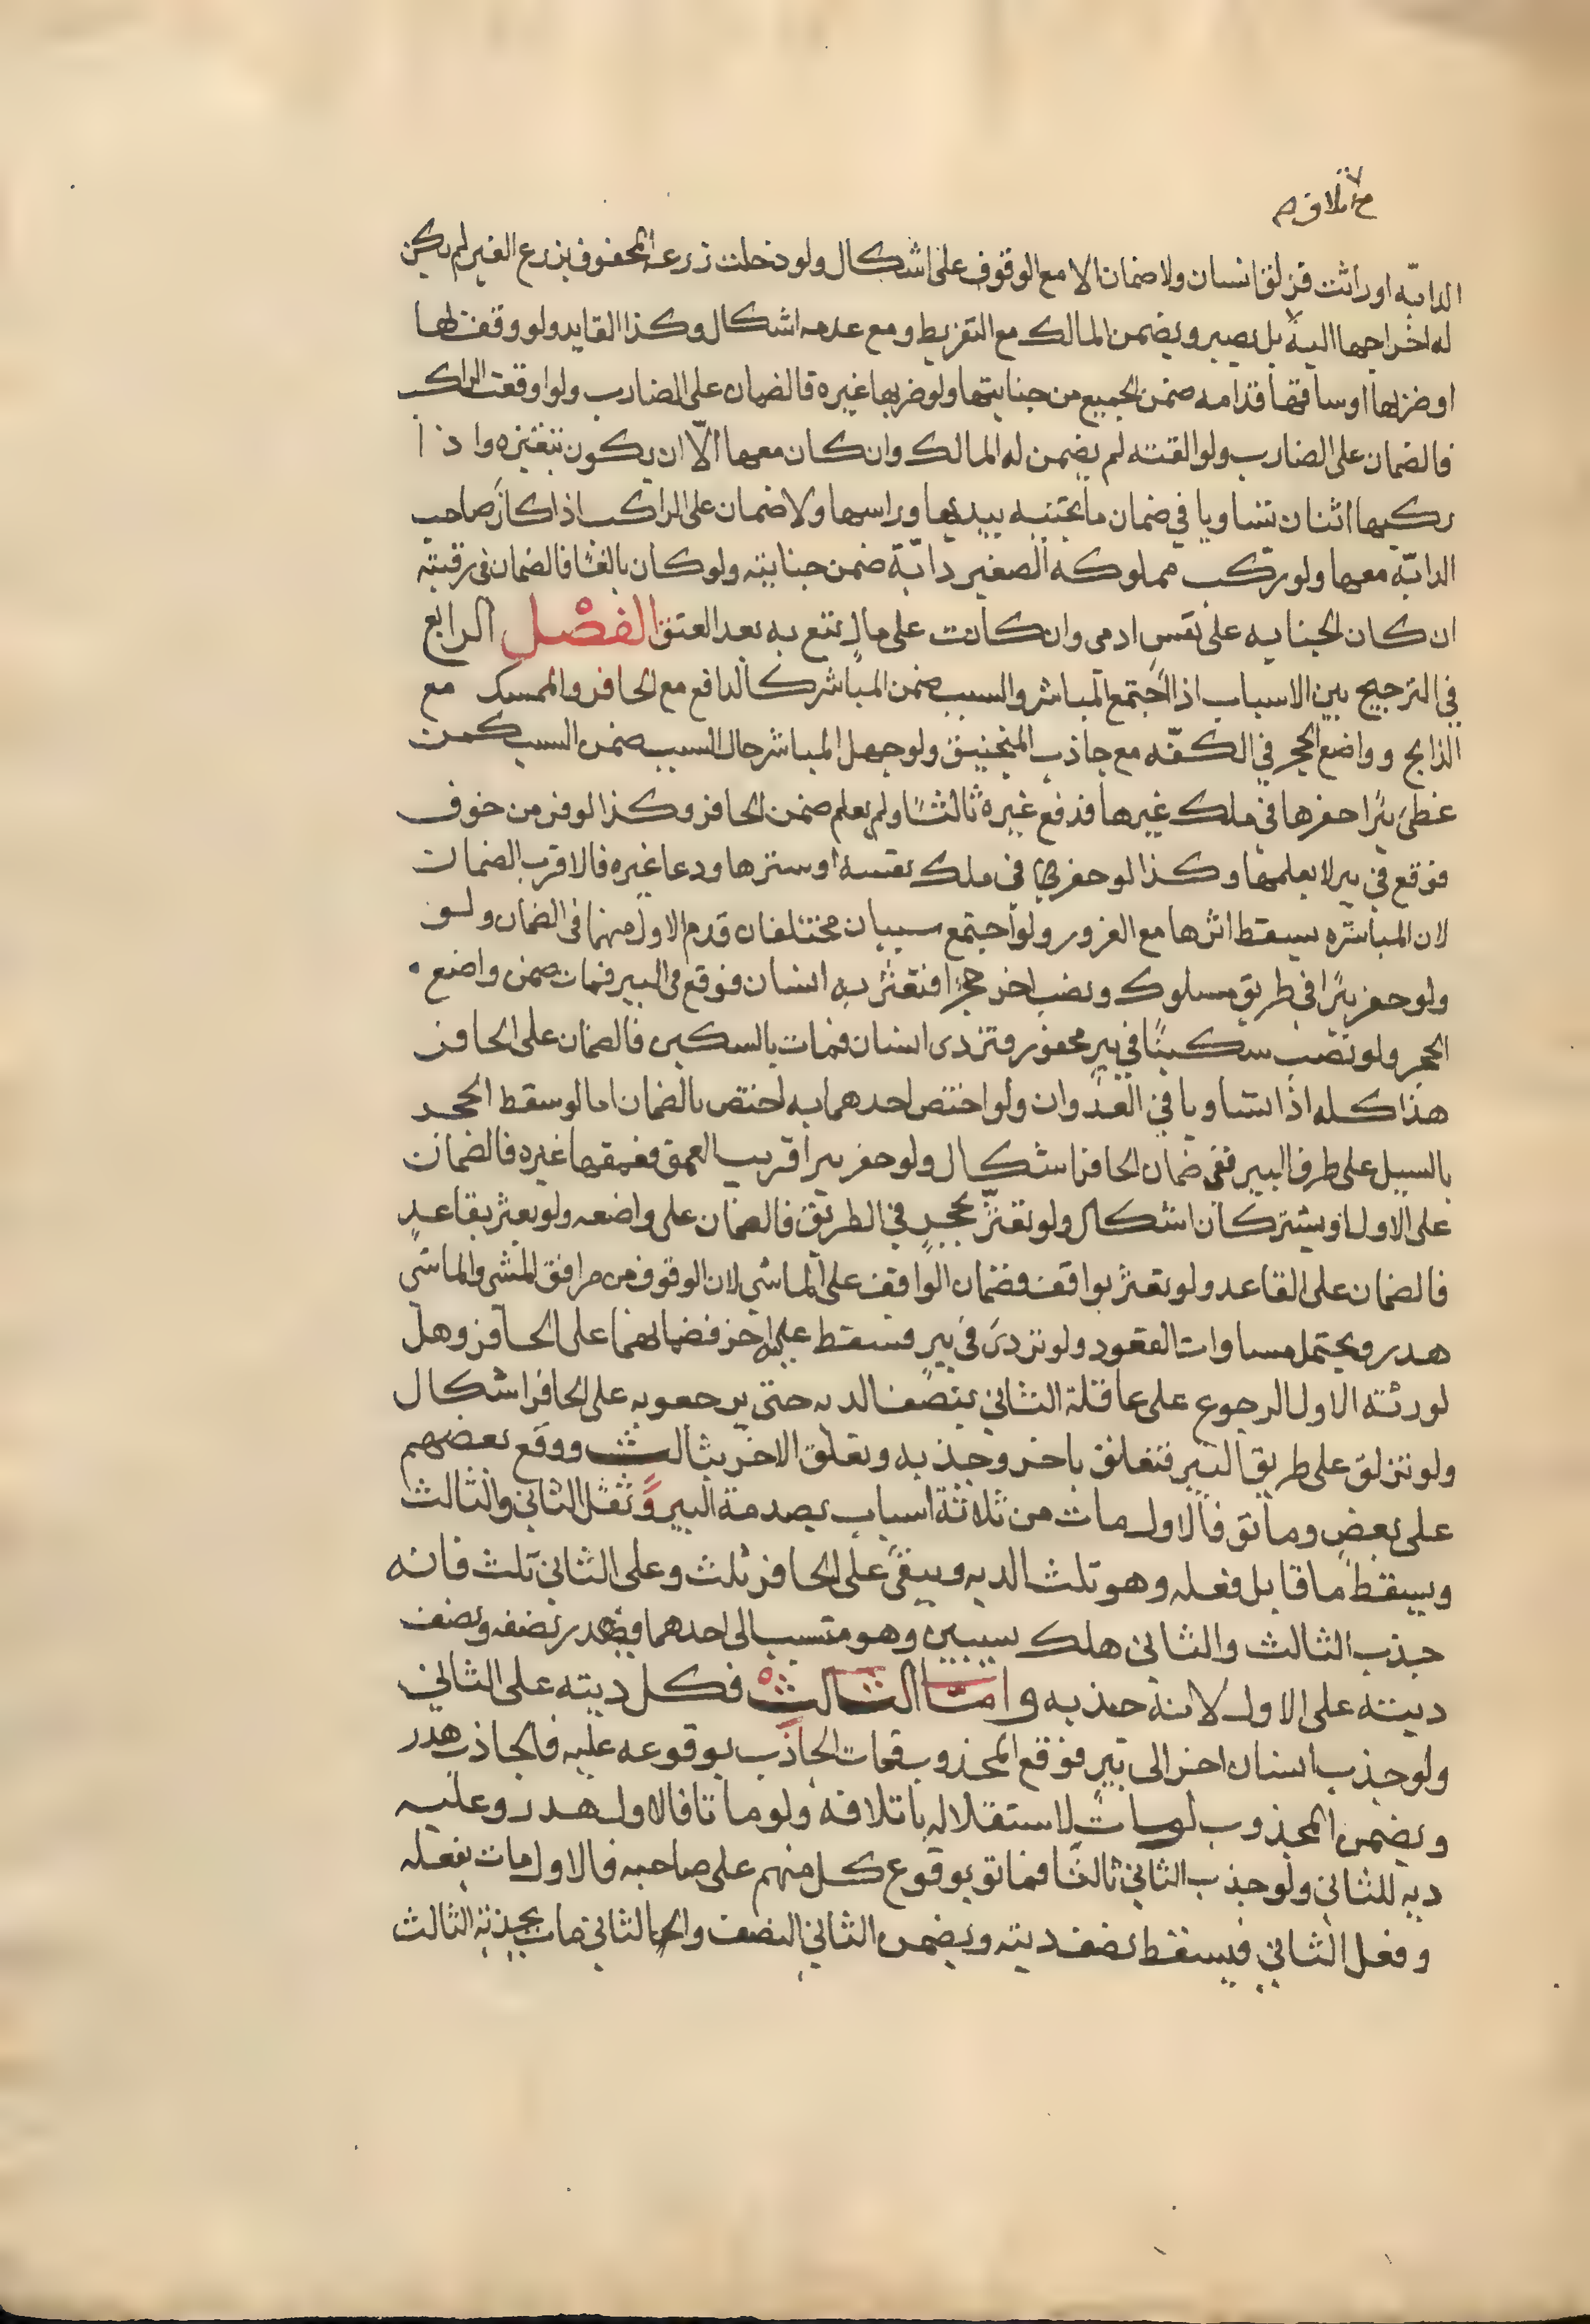 الدابّه او راثت فزلق انسان ولا ضمان الا مع الوقوف على اشكال ولو دخلت زرعه المحفوف بزرع الغير لم يكن
له اخراجها اليه بل يصبر ويضمن المالك مع التفريط ومع عدمه اشكال وكذا القايد ولو وقفت لها
او ضربها او ساقها قدامه ضمن الجميع من جنايتها ولو ضربها غيره فالضمان على الضارب ولو اوقعت الراكب
فالضمان على الضارب ولو القته لم يضمن له المالك وان كان معها الّا ان يكون بتنفيزه واذا
ركبها اثنان تساويا في ضمان ما تجنيه بيديها وراسها ولا ضمان على الراكب اذا كان صاحب
الدابّه معها ولو تركب مملوكه الصغير دابّة ضمن جنايته ولو كان بالغا فالضمان في رقبته
ان كان الجنايه على نفس ادمى وان كانت على مال يتبع به بعد العتق الفصل الرابع
في الترجيح بين الاسباب اذا اجتمع المباشر والسبب ضمن المباشر كالدافع مع الحافر والممسك مع
الذابح وواضع الحجر في الكفّه مع جاذب المنجنيق ولو جهل المباشر حال السبب ضمن السبب كمن
غطى بئرا حفرها في ملك غيرها فدفع غيره ثالثًا ولم يعلم ضمن الحافر وكذا لو فر من خوف
فوقع في بير لا يعلمها وكذا لو حفر في ملك نفسه او سترها ودعا غيره فالاقرب الضمان
لان المباشره يسقط اثرها مع الغرور ولو اجتمع سببان مختلفان قدم الاول منهما في الضمان ولو
ولو حفر بئرا في طريق مسلوك ونصب اخر حجرا فتعثر به انسان فوقع في البير فمات ضمن واضع
الحجر ولو نصب سكينًا في بير محفور فتردى انسان فمات بالسكين فالضمان على الحافر
هذا كله اذا تساويا في العدوان ولو اختص احدهما به اختص بالضمان اما لو سقط الحجر
بالسيل على طرف البير ففى ضمان الحافر اشكال ولو حفر بيرا قريب العمق فعمقها غيره فالضمان
على الاول او يشتركان اشكال ولو تعثّر بحجر في الطريق فالضمان على واضعه ولو تعثر بقاعد
فالضمان على القاعد ولو تعثر بواقف فضمان الواقف على الماشي لان الوقوف من مرافق المشى والماشي
هدر ويحتمل مساوات القعود ولو تردى في بير فسقط عليه اخر فضمانهما على الحافر وهل
لورثة الاول الرجوع على عاقلة الثاني بنصف الديه حتى يرجعو به على الحافر اشكال
ولو تزلق على طريق البير فتعلق باخر وجذبه وتعلق الاخر بثالث ووقع بعضهم
على بعض وماتو فالاول مات من ثلاثة اسباب بصدمة البير وثقل الثاني والثالث
ويسقط ما قابل فعله وهو ثلث الديه ويبقى على الحافر ثلث وعلى الثاني ثلث فانه
جذب الثالث والثاني هلك بسببين وهو متسبب الى احدهما فيهدر نصفه ونصف
ديته على الاول لانه جذبه وامّا الثالث فكل ديته على الثاني
ولو جذب انسان اخر الى بير فوقع المجذوب فمات الجاذب بوقوعه عليه فالجاذب هدر
ويضمن المجذوب لو مات لاستقلاله باتلافه ولو ماتا فالاول هدر وعليه
ديه للثاني ولو جذب الثاني ثالثا فماتو بوقوع كل منهم على صاحبه فالاول مات بفعله
وفعل الثاني فيسقط نصف ديته ويضمن الثاني النصف والثاني مات بجذبة الثالث